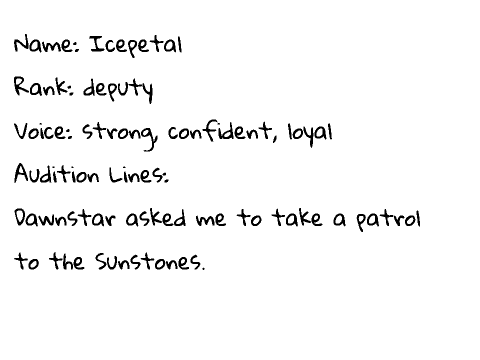 Name: Icepetal
Rank: deputy
Voice: strong, confident, loyal
Audition Lines:
Dawnstar asked me to take a patrol
to the Sunstones.